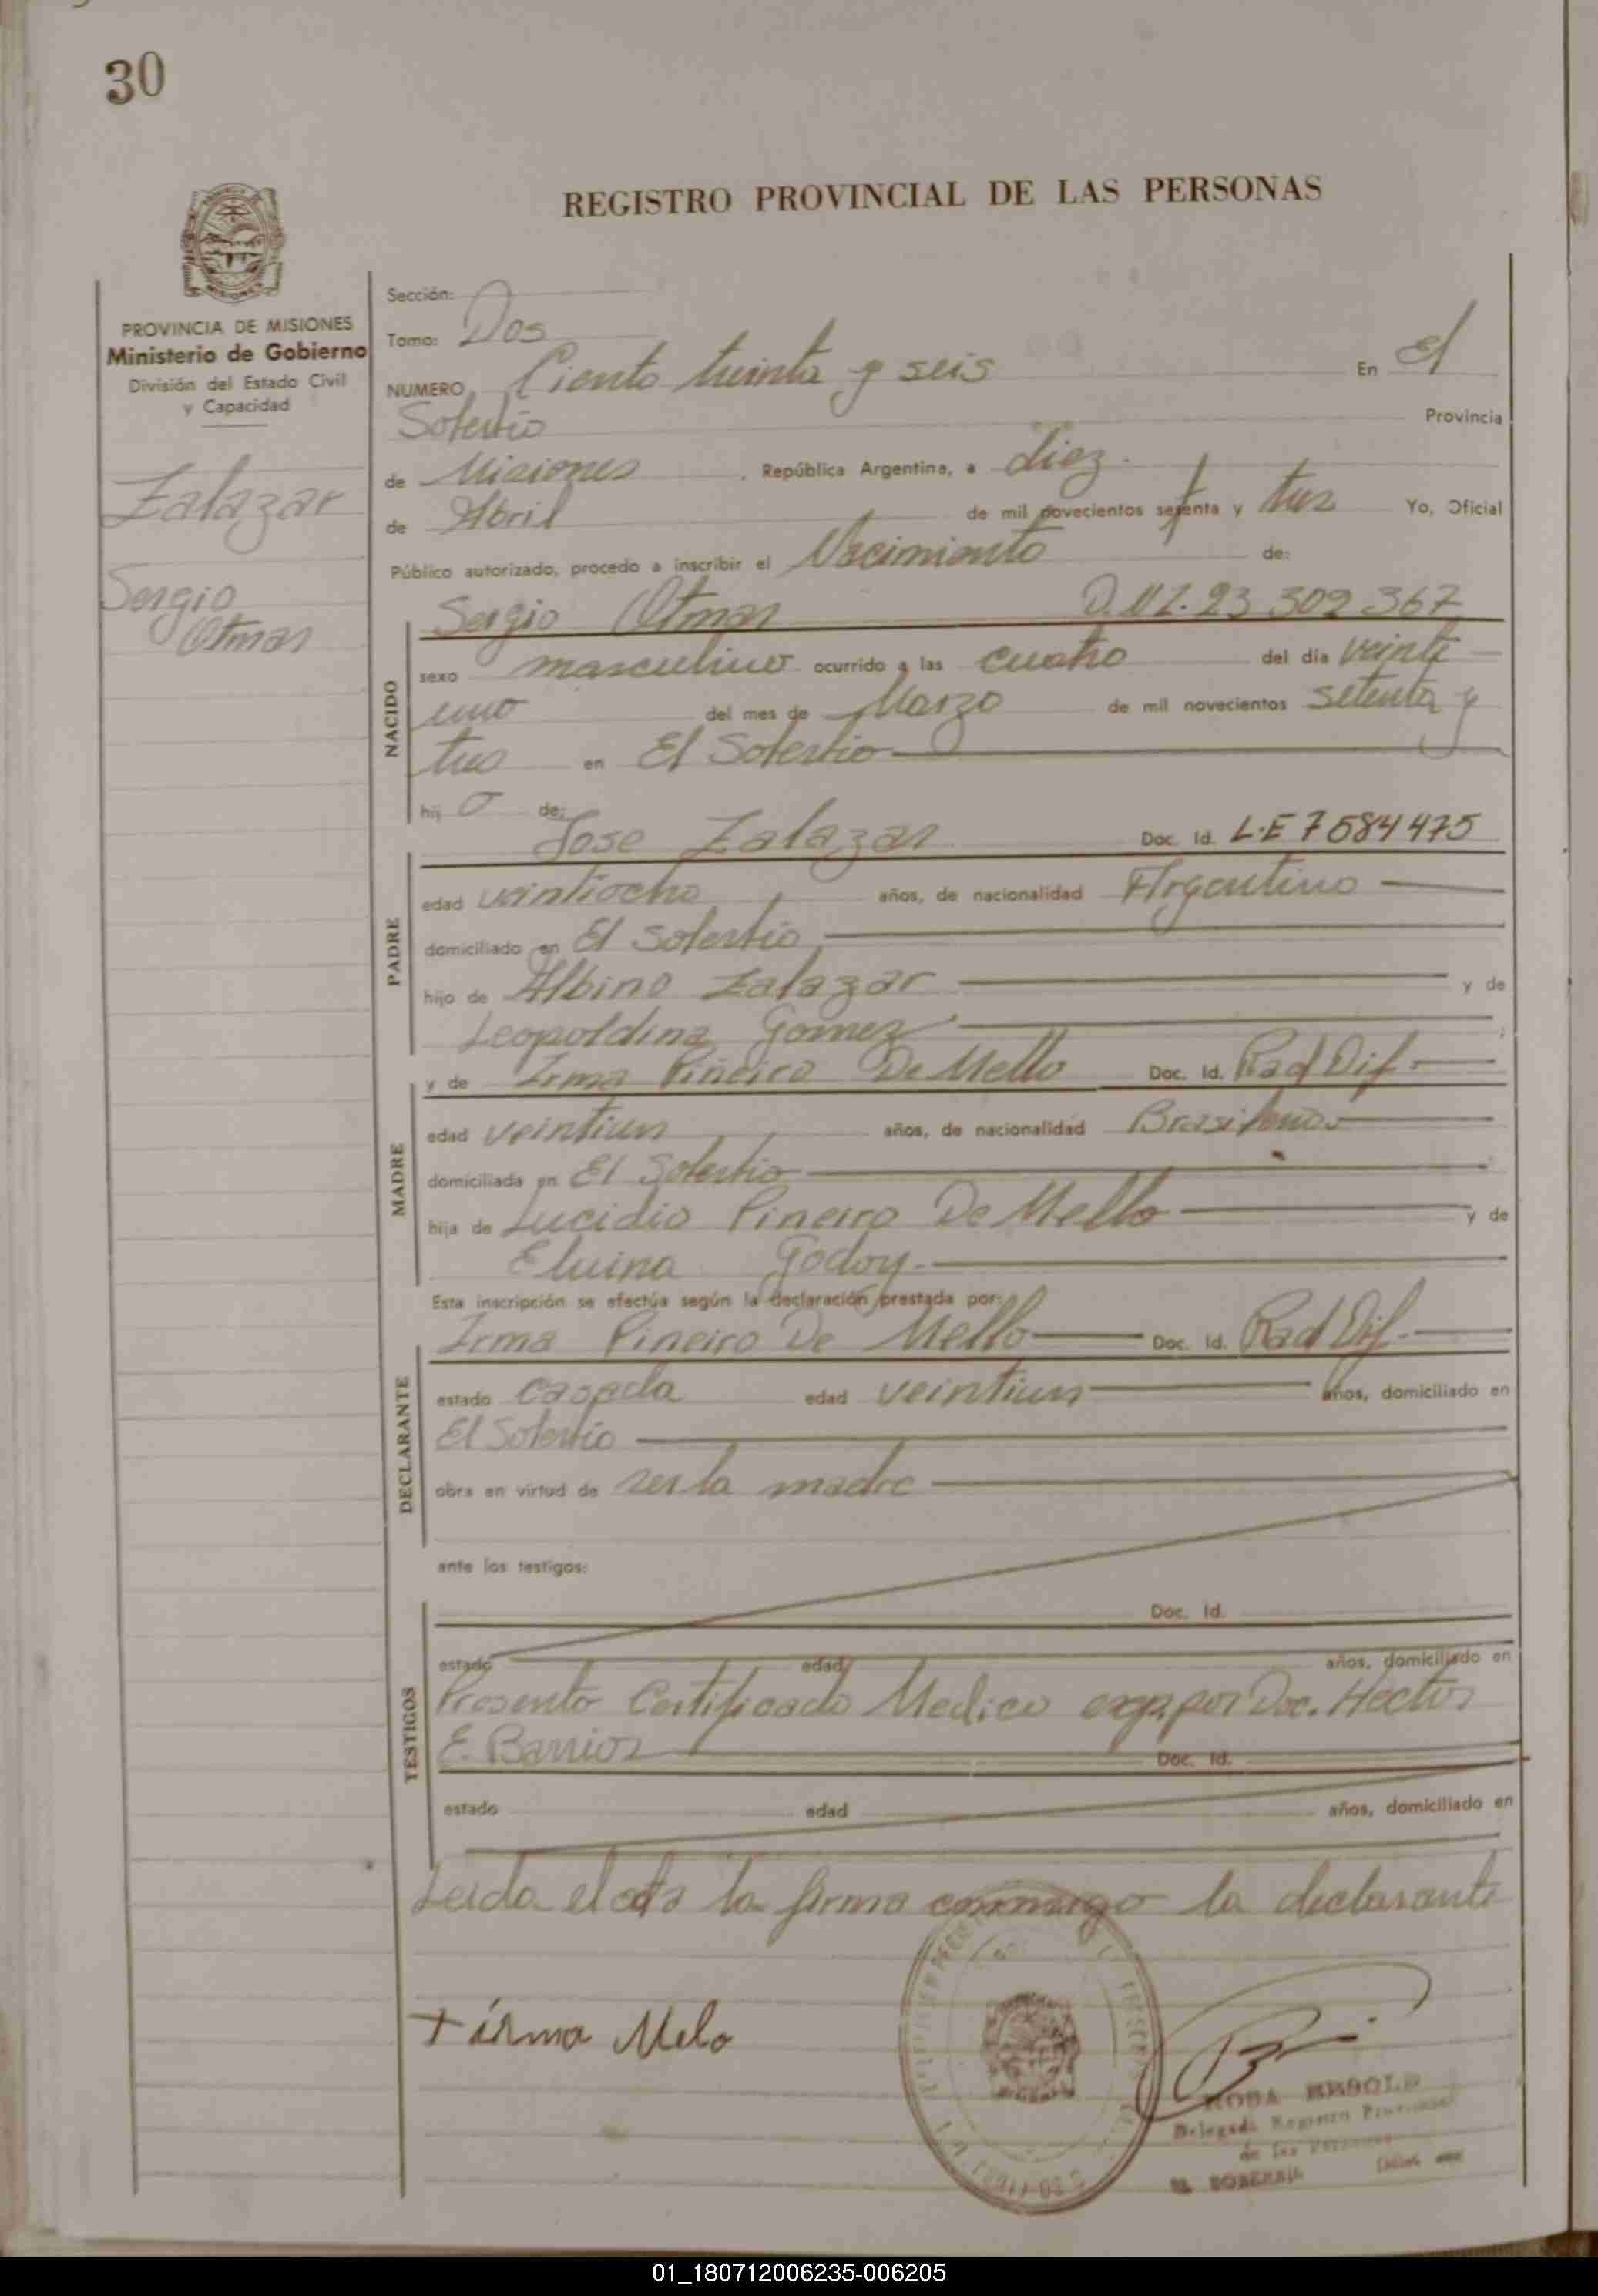 30
REGISTRO PROVINCIAL DE LAS PERSONAS
PROVINCIA DE MISIONES
Ministerio de Gobierno
División del Estado Civil
y Capacidad
Zalazar
Sergio
Otmar
Sección:
Tomo: Dos
NUMERO Ciento treinta y seis En El
Soberbio Provincia
de Misiones , República Argentina, a diez
de Abril de mil novecientos setenta y tres Yo, Oficial
Público autorizado, procedo a inscribir el Nacimiento de:
Sergio Otmar D.N.I. 23 302 367
NACIDO
sexo masculino ocurrido a las cuatro del día veinte
uno del mes de Marzo de mil novecientos setenta y
tres en El Soberbio
hij o de:
Jose Zalazar Doc. Id. L.E 7584475
PADRE
edad veintiocho años, de nacionalidad Argentino
domiciliado en El Soberbio
hijo de Albino Zalazar y de
Leopoldina Gomez ;
y de Irma Piñeiro De Mello Doc. Id. Rad Dif.
MADRE
edad veintiun años, de nacionalidad
domiciliada en El Soberbio
hija de Lucidio Pineiro De Mello y de
Eluina Godoy.
Esta inscripción se efectúa según la declaración prestada por:
Irma Pineiro De Mello Doc. Id. Rad Dif.
DECLARANTE
estado casada edad veintiun años, domiciliado en
El Soberbio
obra en virtud de ser la madre
ante los testigos:
Doc. Id.
TESTIGOS
estado edad años, domiciliado en
Presento Certificado Medico exp. por Doc. Hector
E. Barrios Doc. Id.
estado edad años, domiciliado en
Leida el acta la firma conmigo la declarante
+ irma Melo
Delegada Registro Provincial
de las Personas
EL SOBERBIO
01_180712006235-006205